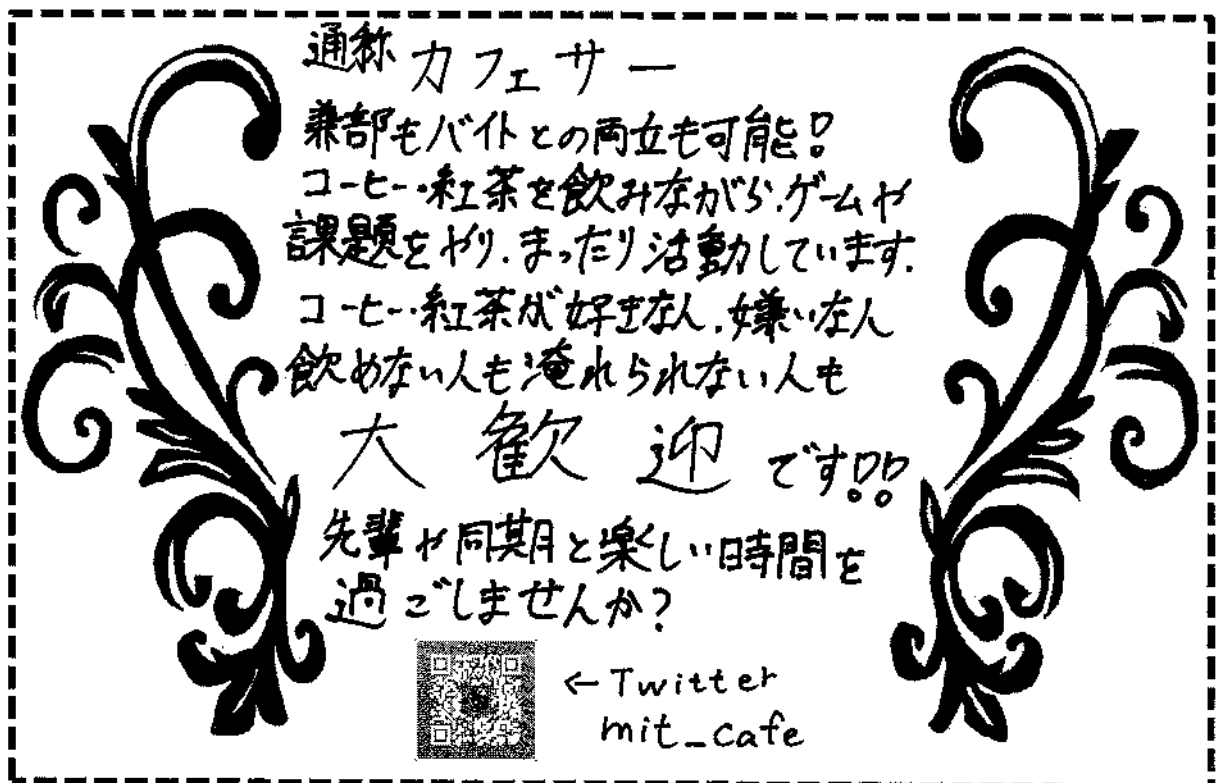 通称 カフェサー
兼部もバイトとの両立も可能!
コーヒー・紅茶を飲みながら、ゲームや
課題をやり、まったり活動しています。
コーヒー・紅茶が好きな人、嫌いな人
飲めない人も淹れられない人も
大歓迎です!!
先輩や同期と楽しい時間を
過ごしませんか?
←Twitter
mit_cafe